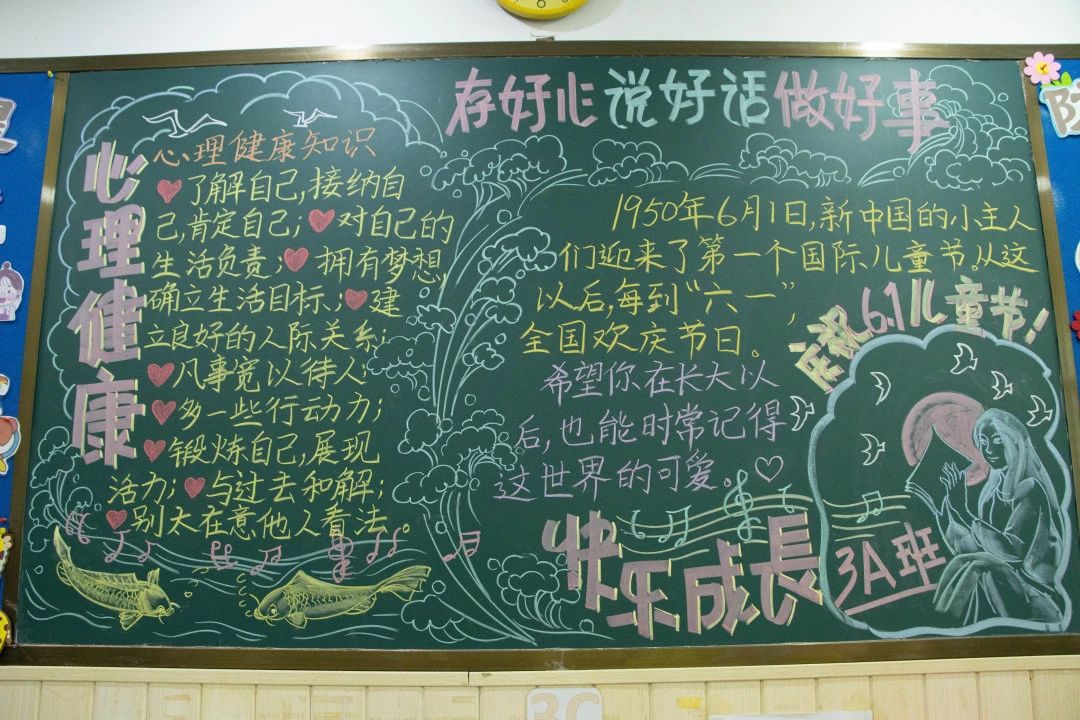 存好心说好话做好事
心理健康
心理健康知识
了解自己,接纳自
己,肯定自己;对自己的
生活负责;拥有梦想,
确立生活目标;建
立良好的人际关系;
凡事宽以待人;
多一些行动力;
锻炼自己,展现
活力;与过去和解;
别太在意他人看法。
1950年6月1日,新中国的小主人
们迎来了第一个国际儿童节。从这
以后,每到“六一”,
全国欢庆节日。
庆祝6.1儿童节!
希望你在长大以
后,也能时常记得
这世界的可爱。
快乐成長
3A班
3C